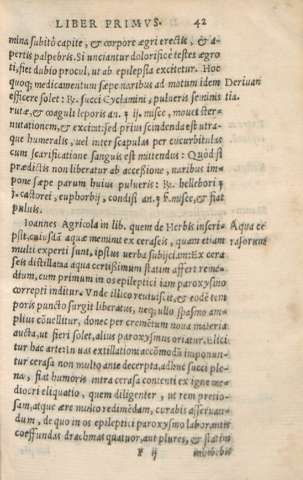 LIBER PRIMVS. 42
mina subitò capite, & corpore ægri erectis, & a-
pertis palpebris. Si unciantur dolorificè testes ægro
ti, fiet dubio procul, ut ab epilepsia excitetur. Hoc
quoq; medicamentum sæpe naribus ad motum idem
Derivan
efficere solet: ℞. succi Cyclamini, pulueris seminis
tia.
rutæ, & coaguli leporis an. ʒ ij. misce, mouet ster-
nutationem, & excitat: sed prius scindenda est utra-
que humeralis, uel inter scapulas per cucurbitulas
cum scarificatione sanguis est mittendus: Quòd si
prædictis non liberatur ab accessione, naribus im-
pone sæpe parum huius pulueris: ℞. hellebori
castorei, euphorbij, condisi an. misce, & fiat
puluis.
Ioannes Agricola in lib. quem de Herbis inscri-
Aqua ce
psit, cuiusdã aquæ meminit ex cerasis, quam etiam
rasorum
multi experti sunt, ipsius uerba subijciam: Ex cera-
sis distillata aqua certissimum statim affert reme-
dium, cum primum in os epileptici iam paroxysmo
correpti inditur. Vnde illico reuiuiscit, & eodẽ tem
poris puncto surgit liberatus, neq; ullo spasmo am-
plius cõuellitur, donec per crementum noua materia
aucta, ut fieri solet, alius paroxysmus oriatur. Elici
tur hac arte: In uas extillationi accõmodũ imponun-
tur cerasa non multo ante decerpta, adhuc succi ple-
na, fiat humoris intra cerasa contenti ex igne me-
diocri eliquatio, quem diligenter, ut rem precio-
sam, atque ære multo redimẽdam, curabis asseruan-
dum, de quo in os epileptici paroxysmo laborantis
coeffundas drachmas quatuor, aut plures, & statim
F ij